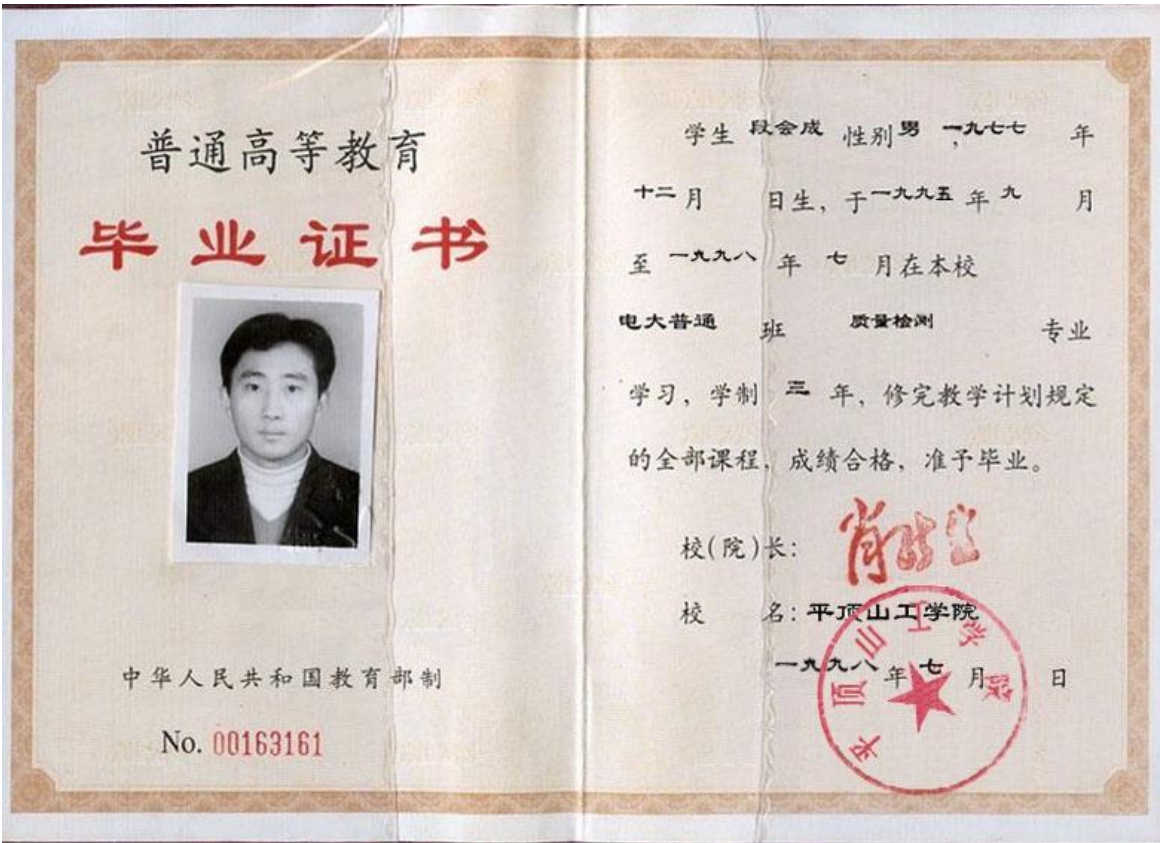 普通高等教育
毕业证书
中华人民共和国教育部制
No. 00163161
学生 段会成 性别 男 ,一九七七 年
十二 月 日生，于 一九九五 年 九 月
至 一九九八 年 七 月在本校
电大普通 班 质量检测 专业
学习，学制 三 年，修完教学计划规定
的全部课程，成绩合格，准予毕业。
校(院)长：
校 名：平顶山工学院
一九九八 年 七 月 日
平顶山工学院